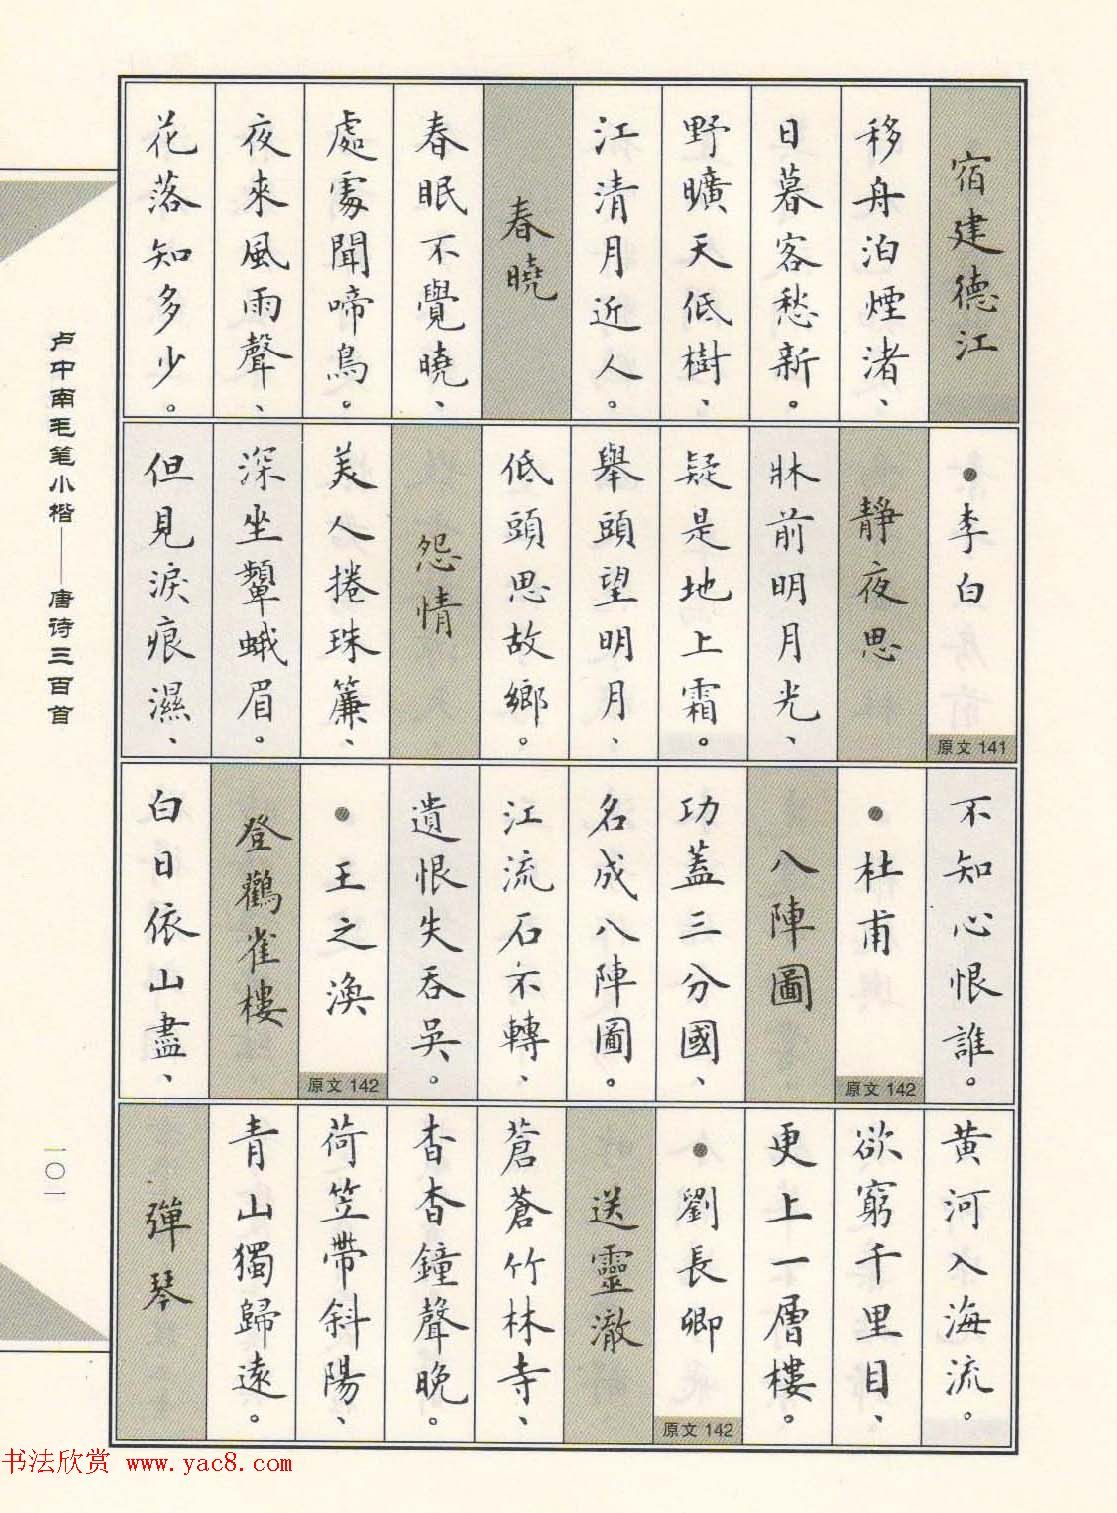 宿建德江
移舟泊煙渚、
日暮客愁新。
野曠天低樹、
江清月近人。
春曉
春眠不覺曉、
處處聞啼鳥。
夜來風雨聲、
花落知多少。
●李白
原文 141
靜夜思
牀前明月光、
疑是地上霜。
舉頭望明月、
低頭思故鄉。
怨情
美人捲珠簾、
深坐顰蛾眉。
但見淚痕濕、
不知心恨誰。
●杜甫
原文 142
八陣圖
功蓋三分國、
名成八陣圖。
江流石不轉、
遺恨失吞吳。
●王之渙
原文 142
登鸛雀樓
白日依山盡、
黄河入海流。
欲窮千里目、
更上一層樓。
●劉長卿
原文 142
送靈澈
蒼蒼竹林寺、
杳杳鐘聲晚。
荷笠帶斜陽、
青山獨歸遠。
彈琴
卢中南毛笔小楷——唐诗三百首
一〇一
书法欣赏 www.yac8.com